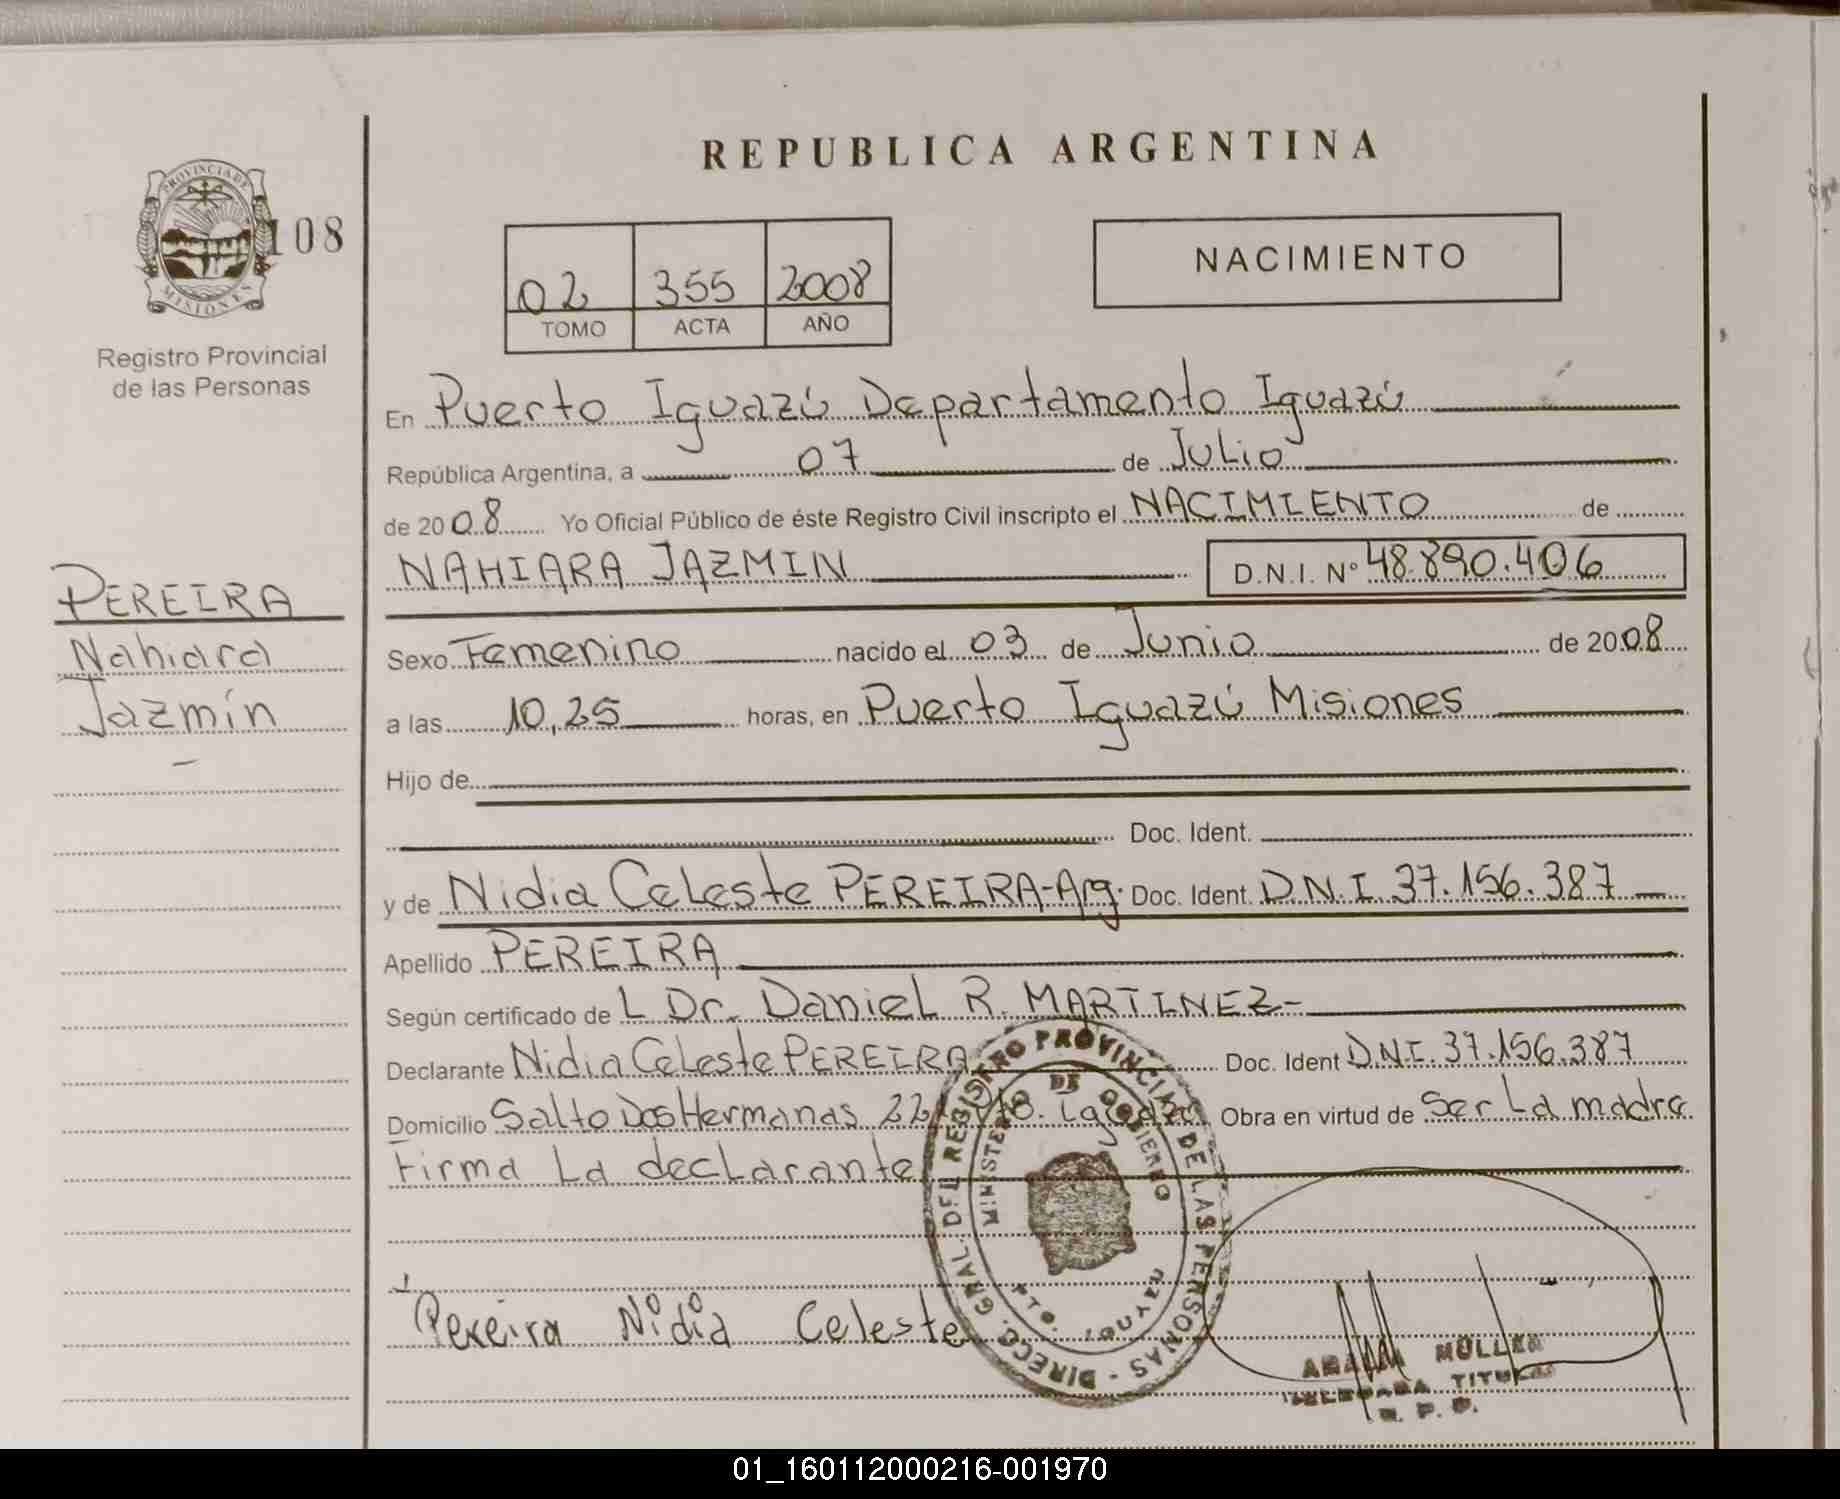 REPUBLICA ARGENTINA
PROVINCIA DE
MISIONES
108
Registro Provincial
de las Personas
02 355 2008
TOMO ACTA AÑO
NACIMIENTO
En Puerto Iguazú Departamento Iguazú
República Argentina, a 07 de Julio
de 2008 Yo Oficial Público de éste Registro Civil inscripto el NACIMIENTO de
NAHIARA JAZMIN D.N.I. Nº 48.890.406
PEREIRA
Nahiara
Jazmín
Sexo Femenino nacido el 03 de Junio de 2008
a las 10,25 horas, en Puerto Iguazú Misiones
Hijo de
Doc. Ident.
y de Nidia Celeste PEREIRA-Arg. Doc. Ident. D.N.I. 37.156.387
Apellido PEREIRA
Según certificado de L Dr. Daniel R. MARTINEZ-
Declarante Nidia Celeste PEREIRA Doc. Ident D.N.I. 37.156.387
Domicilio Salto Dos Hermanas 22 Obra en virtud de Ser La madre
Firma La declarante
DIRECC. GRAL. DEL REGISTRO PROVINCIAL DE LAS PERSONAS
MINISTERIO DE GOBIERNO
Pereira Nidia Celeste
MULLER
DELEGADA TITULAR
R. P. P.
01_160112000216-001970